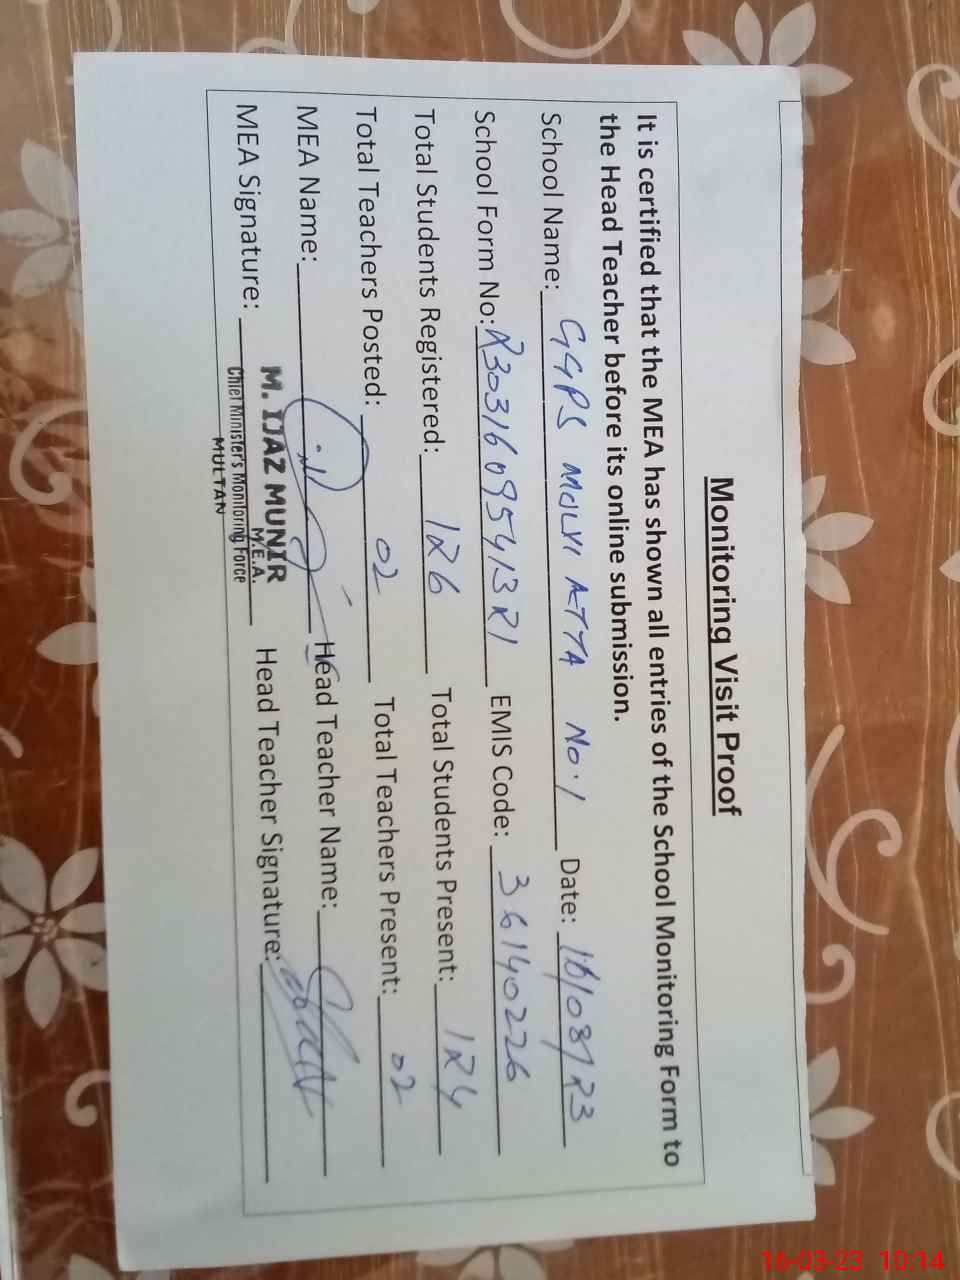 Monitoring Visit Proof
It is certified that the MEA has shown all entries of the School Monitoring Form to
the Head Teacher before its online submission.
School Name: GGPS MOLVI ATTA No.1 Date: 16/03/23
School Form No: R30316095413R1 EMIS Code: 36140226
Total Students Registered: 126 Total Students Present: 124
Total Teachers Posted: 02 Total Teachers Present: 02
MEA Name: Head Teacher Name:
MEA Signature: M. IJAZ MUNIR Head Teacher Signature:
M.E.A.
Chief Minister's Monitoring Force
MULTAN
16-03-23 10:14